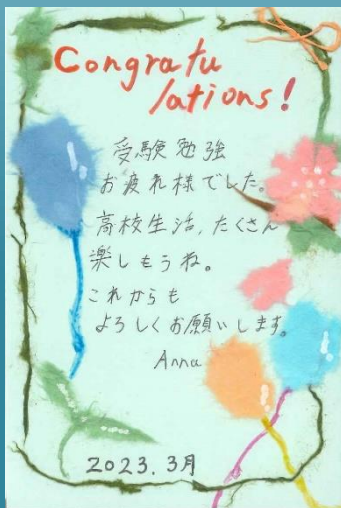 Congratu
lations!
受験勉強
お疲れ様でした。
高校生活、たくさん
楽しもうね。
これからも
よろしくお願いします。
Anna
2023.3月